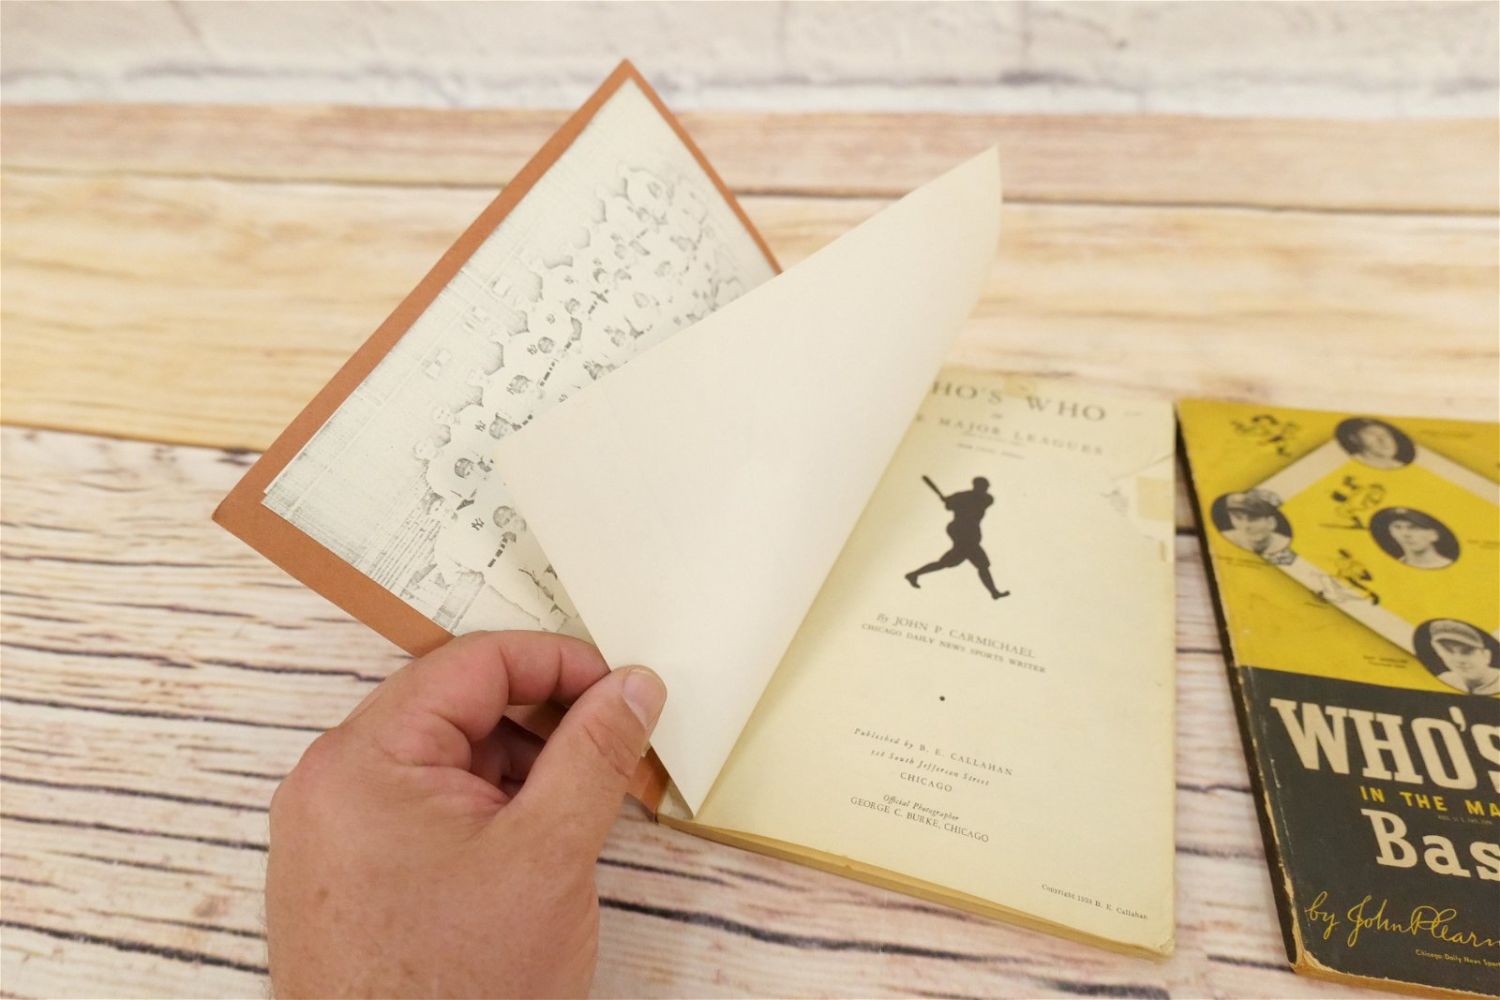 WHO'S WHO
MAJOR LEAGUES
By JOHN P. CARMICHAEL
CHICAGO DAILY NEWS SPORTS WRITER
Published by B. E. CALLAHAN
South Jefferson Street
CHICAGO
Official Photographer
GEORGE C. BURKE, CHICAGO
Copyright B. E. Callahan
WHO'S
IN THE MA
Bas
by John P. Carm
Chicago Daily News Sport